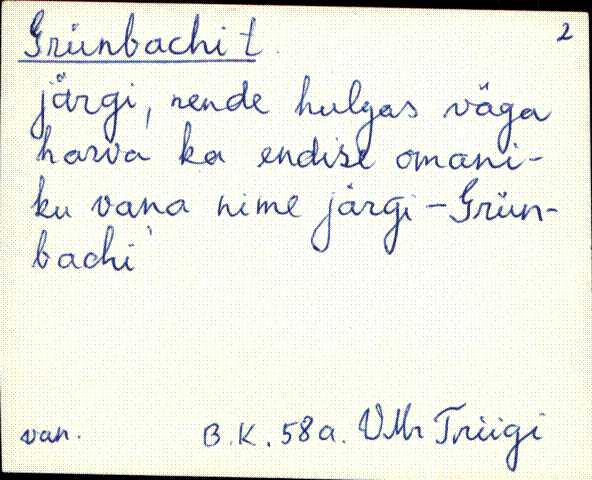 Grünbachi t.
2
järgi, nende hulgas väga
harva ka endise omani-
ku vana nime järgi – Grün-
bachi
van.
B.K. 58a. VMr Triigi